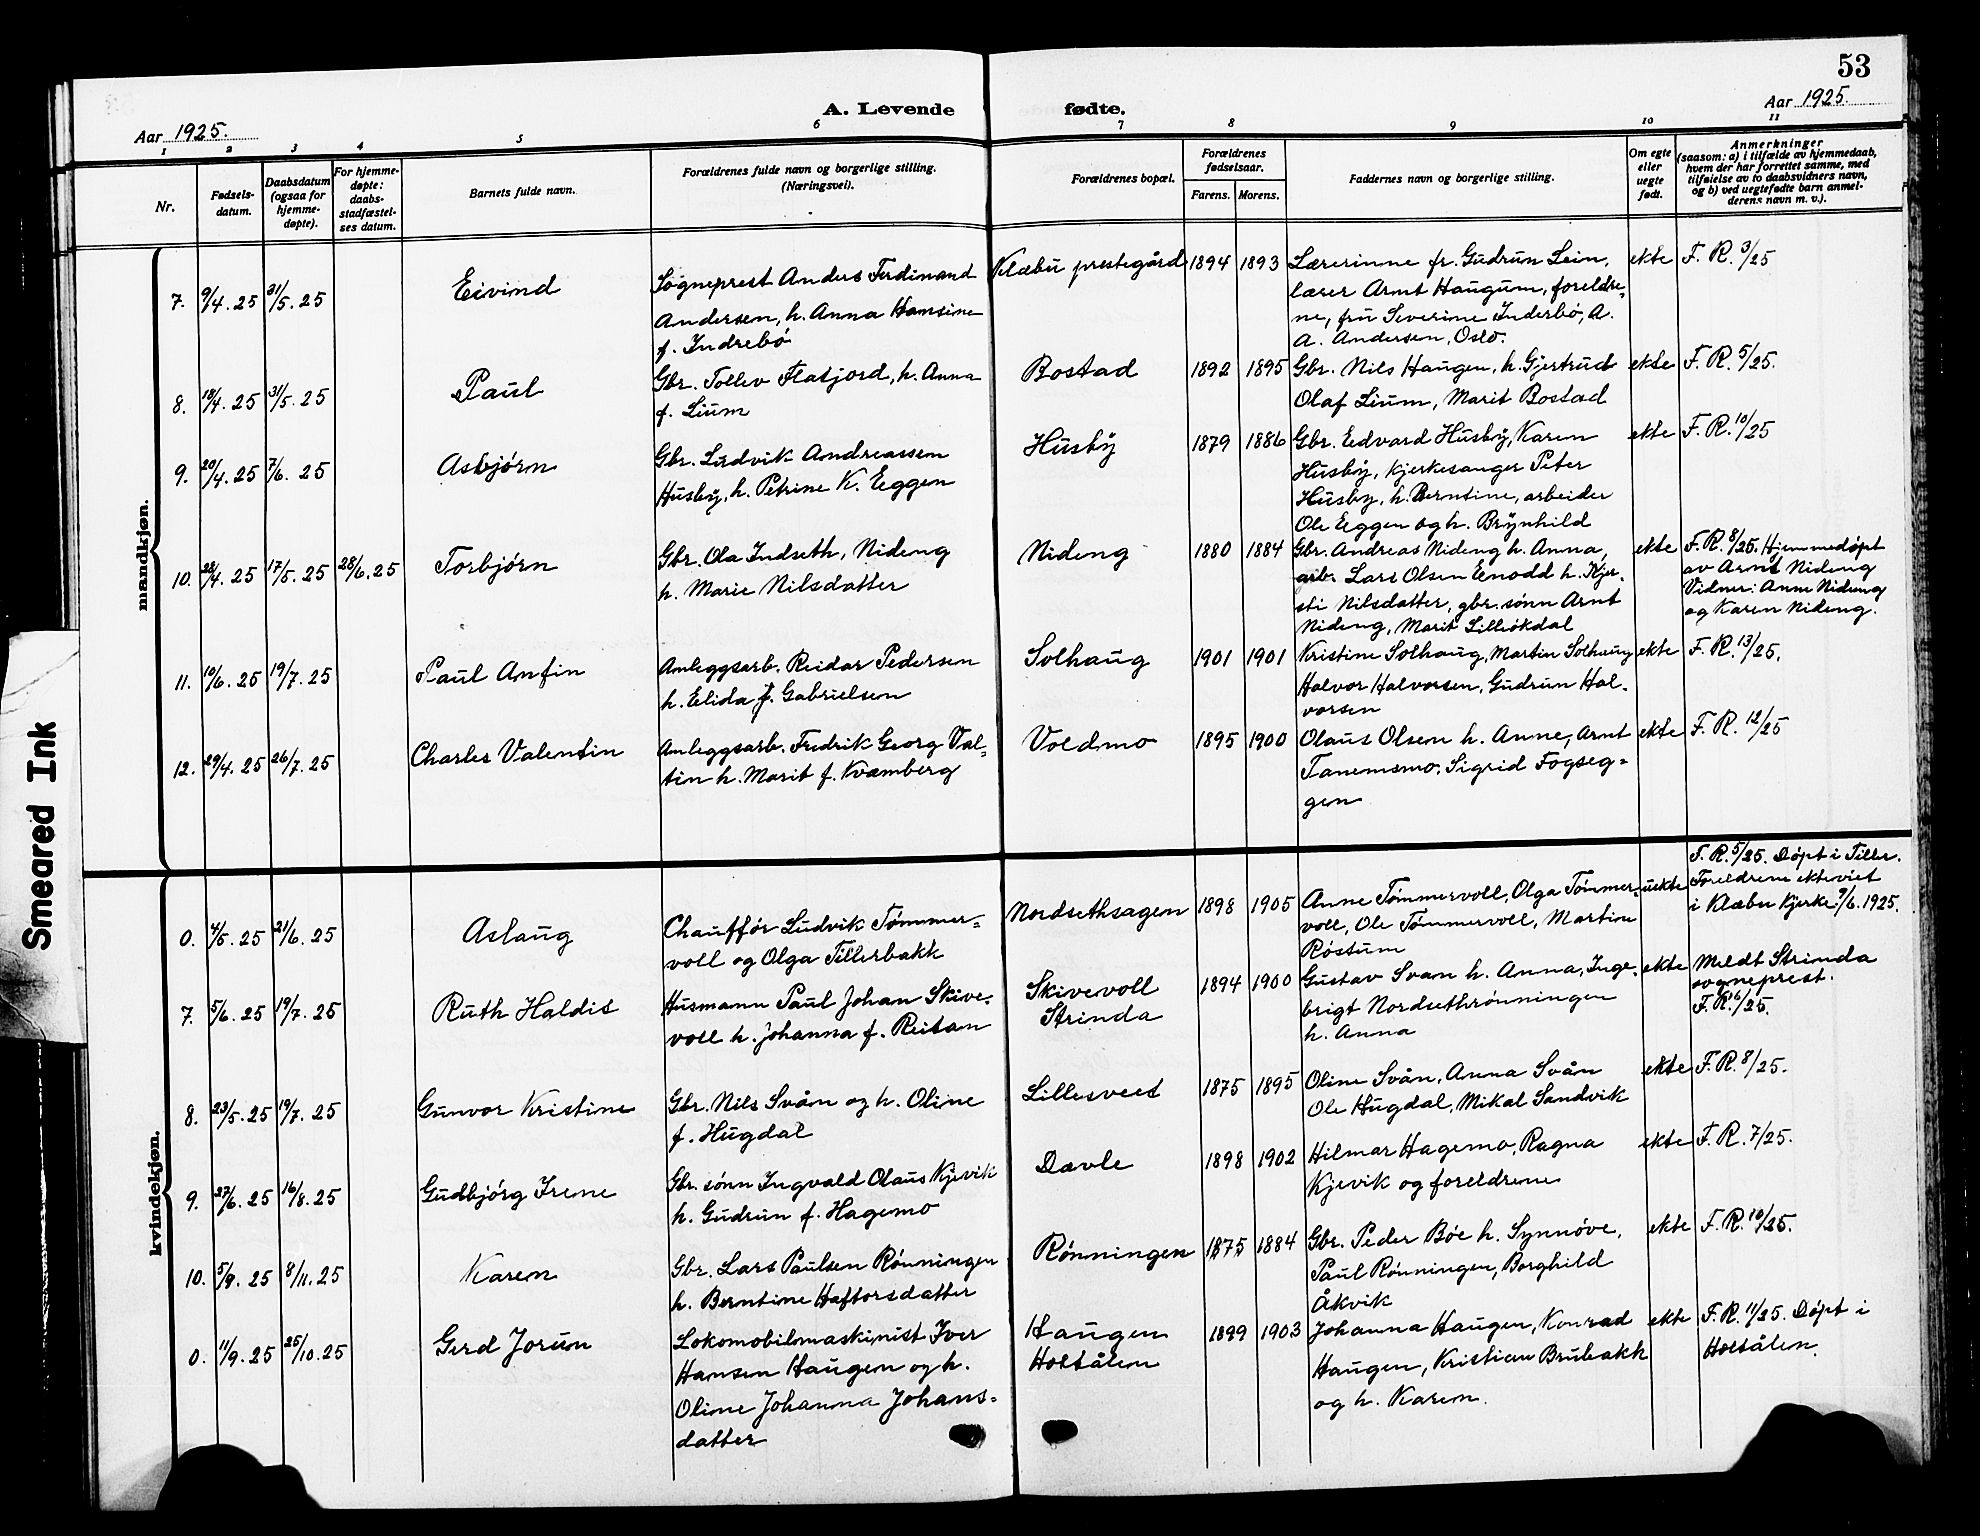 53
A. Levende fødte.
Aar 1925.
Aar 1925.
1 2 3 4 5 6 7 8 9 10 11
Nr.
Fødsels-
datum.
Daabsdatum
(ogsaa for
hjemme-
døpte).
For hjemme-
døpte:
daabs-
stadfæstel-
ses datum.
Barnets fulde navn.
Forældrenes fulde navn og borgerlige stilling.
(Næringsvei).
Forældrenes bopæl.
Forældrenes
fødselsaar.
Farens. Morens.
Faddernes navn og borgerlige stilling.
Om egte
eller
uegte
født.
Anmerkninger
(saasom: a) i tilfælde av hjemmedaab,
hvem der har forrettet samme, med
tilføielse av to daabsvidners navn,
og b) ved uegtefødte barn anmel-
derens navn m. v.).
mandkjøn.
7. 9/4. 25 31/5. 25 Eivind
Sogneprest Anders Ferdinand
Andersen, h. Anna Hansine
f. Indrebø
Klæbu prestegård 1894 1893
Lærerinne fr. Gudrun Lein,
lærer Arnt Haugum, foreldre-
ne, fru Severine Inderbø, A.
A. Andersen, Oslo.
ekte F. R. 3/25
8. 18/4. 25 31/5. 25 Paul
Gbr. Tollev Flatjord, h. Anna
f. Lium
Bostad 1892 1895
Gbr. Nils Haugen, h. Gjertrud
Olaf Lium, Marit Bostad
ekte F. R. 5/25.
9. 20/4. 25 7/6. 25 Asbjørn
Gbr. Ludvik Andreassen
Husby, h. Petrine K. Eggen
Husby 1879 1886
Gbr. Edvard Husby, Karen
Husby, kjerkesanger Peter
Husby, h. Berntine, arbeider
Ole Eggen og h. Brynhild
ekte F. R. 10/25
10. 28/4. 25 17/5. 25 28/6. 25 Torbjørn
Gbr. Ola Indseth, Nideng
h. Marie Nilsdatter
Nideng 1880 1884
Gbr. Andreas Nideng h. Anna,
arb. Lars Olsen Enodd h. Kjer-
sti Nilsdatter, gbr. sønn Arnt
Nideng, Marit Lilleökdal
ekte F. R. 8/25. Hjemmedøpt
av Arnt Nideng
Vidner: Anne Nideng
og Karen Nideng.
11. 10/6. 25 19/7. 25 Paul Anfin
Anleggsarb. Reidar Pedersen
h. Elida f. Gabrielsen
Solhaug 1901 1901
Kristine Solhaug, Martin Solhaug
Halvor Halvorsen, Gudrun Hal-
vorsen
ekte F. R. 13/25.
12. 29/4. 25 26/7. 25 Charles Valentin
Anleggsarb. Fredrik Georg Val-
tin h. Marit f. Kvamberg
Voldmo 1895 1900
Olaus Olsen h. Anne, Arnt
Tanemsmo, Sigrid Fogseg-
gen
ekte F. R. 12/25
kvindekjøn.
0. 4/5. 25 21/6. 25 Aslaug
Chauffør Ludvik Tømmer-
voll og Olga Tillerbakk
Nordsethsagen 1898 1905
Anne Tømmervoll, Olga Tømmer-
voll, Ole Tømmervoll, Martin
Røstum
uekte F. R. 5/25. Døpt i Tiller.
Foreldrene ekteviet
i Klæbu kjerke 7/6. 1925.
7. 5/6. 25 19/7. 25 Ruth Haldis
Husmann Paul Johan Skive-
voll h. Johanna f. Reitan
Skivevoll
Strinda
1894 1900
Gustav Svan h. Anna, Inge-
brigt Nordsethrønningen
h. Anna
ekte Meldt Strinda
sogneprest.
F. R. 6/25.
8. 23/5. 25 19/7. 25 Gunvor Kristine
Gbr. Nils Svån og h. Oline
f. Hugdal
Lillesveet 1875 1895
Oline Svån, Anna Svån
Ole Hugdal, Mikal Sandvik
ekte F. R. 8/25.
9. 27/6. 25 16/8. 25 Gudbjørg Irene
Gbr. sønn Ingvald Olaus Kjevik
h. Gudrun f. Hagemo
Davle 1898 1902
Hilmar Hagemo, Ragna
Kjevik og foreldrene
ekte F. R. 7/25.
10. 5/9. 25 8/11. 25 Karen
Gbr. Lars Paulsen Rønningen
h. Berntine Haftorsdatter
Rønningen 1875 1884
Gbr. Peder Bøe h. Synnøve,
Paul Rønningen, Borghild
Åkvik
ekte F. R. 10/25.
0. 11/9. 25 25/10. 25 Gerd Jorun
Lokomobilmaskinist Iver
Hansen Haugen og h.
Oline Johanna Johans-
datter
Haugen
Holtålen
1899 1903
Johanna Haugen, Konrad
Haugen, Kristian Brubakk
og h. Karen.
ekte F. R. 11/25. Døpt i
Holtålen.
Smeared Ink